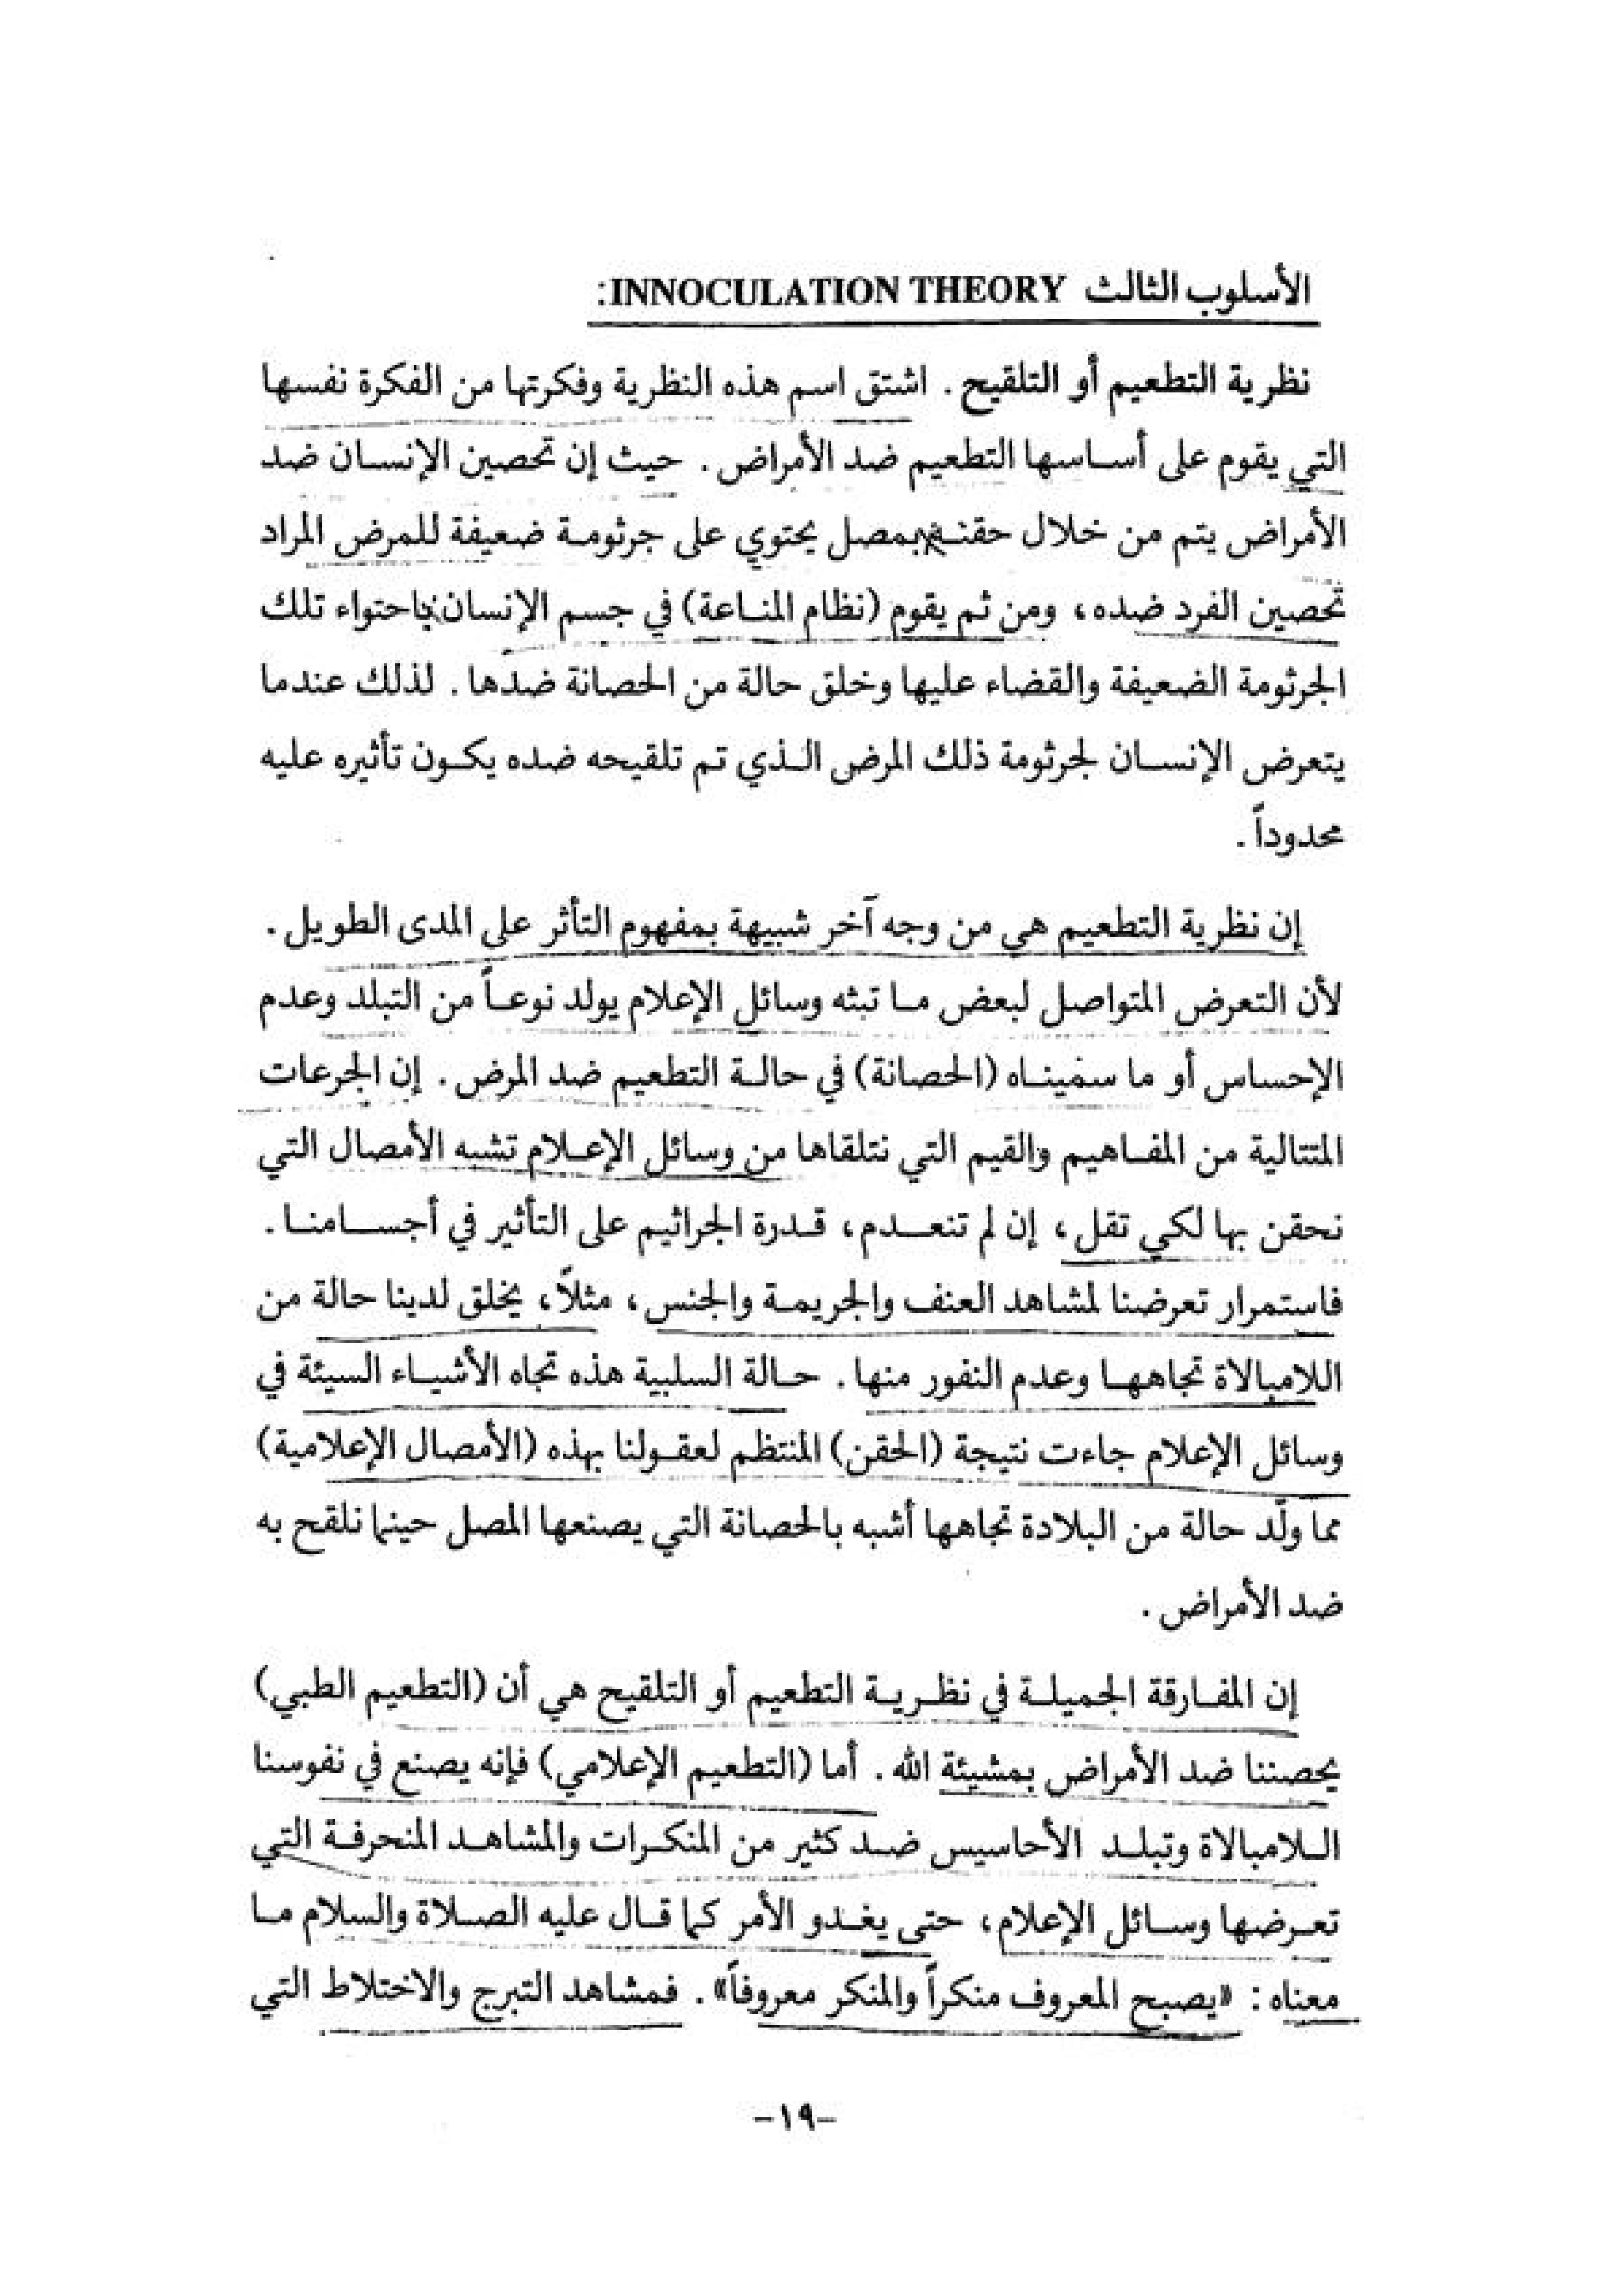 الأسلوب الثالث INNOCULATION THEORY:
نظرية التطعيم أو التلقيح. اشتق اسم هذه النظرية وفكرتها من الفكرة نفسها
التي يقوم على أساسها التطعيم ضد الأمراض. حيث إن تحصين الإنسان ضد
الأمراض يتم من خلال حقنه بمصل يحتوي على جرثومة ضعيفة للمرض المراد
تحصين الفرد ضده، ومن ثم يقوم (نظام المناعة) في جسم الإنسان باحتواء تلك
الجرثومة الضعيفة والقضاء عليها وخلق حالة من الحصانة ضدها. لذلك عندما
يتعرض الإنسان لجرثومة ذلك المرض الذي تم تلقيحه ضده يكون تأثيره عليه
محدوداً.
إن نظرية التطعيم هي من وجه آخر شبيهة بمفهوم التأثر على المدى الطويل.
لأن التعرض المتواصل لبعض ما تبثه وسائل الإعلام يولد نوعاً من التبلد وعدم
الإحساس أو ما سميناه (الحصانة) في حالة التطعيم ضد المرض. إن الجرعات
المتتالية من المفاهيم والقيم التي نتلقاها من وسائل الإعلام تشبه الأمصال التي
نحقن بها لكي تقل، إن لم تنعدم، قدرة الجراثيم على التأثير في أجسامنا.
فاستمرار تعرضنا لمشاهد العنف والجريمة والجنس، مثلاً، يخلق لدينا حالة من
اللامبالاة تجاهها وعدم النفور منها. حالة السلبية هذه تجاه الأشياء السيئة في
وسائل الإعلام جاءت نتيجة (الحقن) المنتظم لعقولنا بهذه (الأمصال الإعلامية)
مما ولّد حالة من البلادة تجاهها أشبه بالحصانة التي يصنعها المصل حينما نلقح به
ضد الأمراض.
إن المفارقة الجميلة في نظرية التطعيم أو التلقيح هي أن (التطعيم الطبي)
يحصننا ضد الأمراض بمشيئة الله. أما (التطعيم الإعلامي) فإنه يصنع في نفوسنا
اللامبالاة وتبلد الأحاسيس ضد كثير من المنكرات والمشاهد المنحرفة التي
تعرضها وسائل الإعلام، حتى يغدو الأمر كما قال عليه الصلاة والسلام ما
معناه: «يصبح المعروف منكراً والمنكر معروفاً». فمشاهد التبرج والاختلاط التي
-١٩-